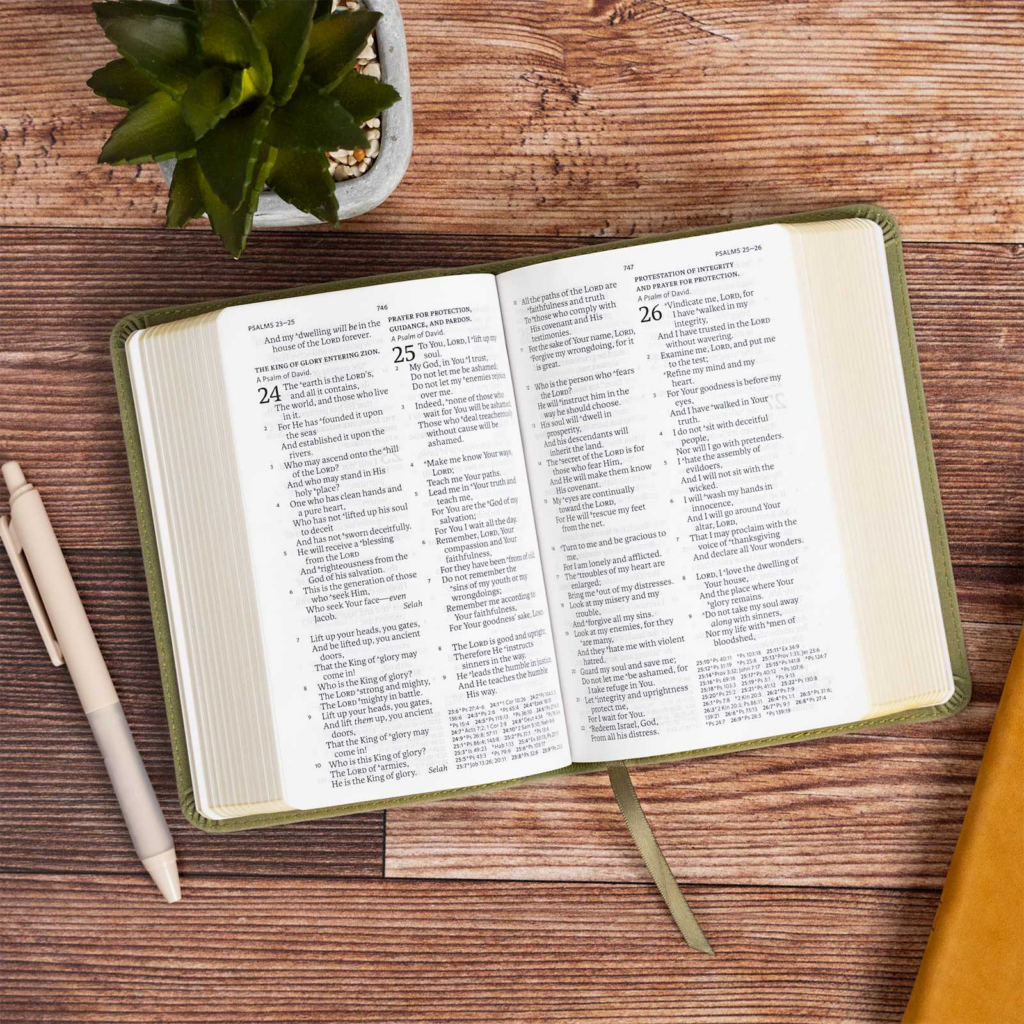 PSALMS 23—25
746
And my ᵃdwelling will be in the
house of the LORD forever.
THE KING OF GLORY ENTERING ZION.
A Psalm of David.
24 The ᵃearth is the LORD's,
and all it contains,
The world, and those who live
in it.
2 For He has ᵃfounded it upon
the seas
And established it upon the
rivers.
3 Who may ascend onto the ᵃhill
of the LORD?
And who may stand in His
holy ᵇplace?
4 One who has clean hands and
a pure heart,
Who has not ᵃlifted up his soul
to deceit
And has not ᵇsworn deceitfully.
5 He will receive a ᵃblessing
from the LORD
And ᵇrighteousness from the
God of his salvation.
6 This is the generation of those
who ᵃseek Him,
Who seek Your face—even
Jacob. Selah
7 Lift up your heads, you gates,
And be lifted up, you ancient
doors,
That the King of ᵃglory may
come in!
8 Who is the King of glory?
The LORD ᵃstrong and mighty,
The LORD ᵇmighty in battle.
9 Lift up your heads, you gates,
And lift them up, you ancient
doors,
That the King of ᵃglory may
come in!
10 Who is this King of glory?
The LORD of ᵃarmies,
He is the King of glory. Selah
PRAYER FOR PROTECTION,
GUIDANCE, AND PARDON.
A Psalm of David.
25 To You, LORD, I ᵃlift up my
soul.
2 My God, in You ᵃI trust,
Do not let me be ashamed;
Do not let my ᵇenemies rejoice
over me.
3 Indeed, ᵃnone of those who
wait for You will be ashamed;
Those who ᵇdeal treacherously
without cause will be
ashamed.
4 ᵃMake me know Your ways,
LORD;
Teach me Your paths.
5 Lead me in ᵃYour truth and
teach me,
For You are the ᵇGod of my
salvation;
For You I wait all the day.
6 Remember, LORD, Your
compassion and Your
faithfulness,
For they have been ᵃfrom of old.
7 Do not remember the
ᵃsins of my youth or my
wrongdoings;
Remember me according to
Your faithfulness,
For Your goodness' sake, LORD.
8 The LORD is good and upright;
Therefore He ᵃinstructs
sinners in the way.
9 He ᵃleads the humble in justice,
And He teaches the humble
His way.
747
PSALMS 25—26
10 All the paths of the LORD are
ᵃfaithfulness and truth
To ᵇthose who comply with
His covenant and His
testimonies.
11 For the sake of Your name, LORD,
ᵃForgive my wrongdoing, for it
is great.
12 Who is the person who ᵃfears
the LORD?
He will ᵇinstruct him in the
way he should choose.
13 His soul will ᵃdwell in
prosperity,
And his descendants will
inherit the land.
14 The ᵃsecret of the LORD is for
those who fear Him,
And He will make them know
His covenant.
15 My ᵃeyes are continually
toward the LORD,
For He will ᵇrescue my feet
from the net.
16 ᵃTurn to me and be gracious to
me,
For I am lonely and afflicted.
17 The ᵃtroubles of my heart are
enlarged;
Bring me ᵇout of my distresses.
18 Look at my misery and my
trouble,
And ᵃforgive all my sins.
19 Look at my enemies, for they
ᵃare many,
And they ᵇhate me with violent
hatred.
20 Guard my soul and save me;
Do not let me ᵃbe ashamed, for
I take refuge in You.
21 Let ᵃintegrity and uprightness
protect me,
For I wait for You.
22 ᵃRedeem Israel, God,
From all his distress.
PROTESTATION OF INTEGRITY
AND PRAYER FOR PROTECTION.
A Psalm of David.
26 ᵃVindicate me, LORD, for
I have ᵇwalked in my
integrity,
And I have trusted in the LORD
without wavering.
2 Examine me, LORD, and put me
to the test;
ᵃRefine my mind and my
heart.
3 For Your goodness is before my
eyes,
And I have ᵃwalked in Your
truth.
4 I do not ᵃsit with deceitful
people,
Nor will I go with pretenders.
5 I ᵃhate the assembly of
evildoers,
And I will not sit with the
wicked.
6 I will ᵃwash my hands in
innocence,
And I will go around Your
altar, LORD,
7 That I may proclaim with the
voice of ᵃthanksgiving
And declare all Your wonders.
8 LORD, I love the dwelling of
Your house,
And the place where Your
ᵃglory remains.
9 ᵃDo not take my soul away
along with sinners,
Nor my life with ᵇmen of
bloodshed,